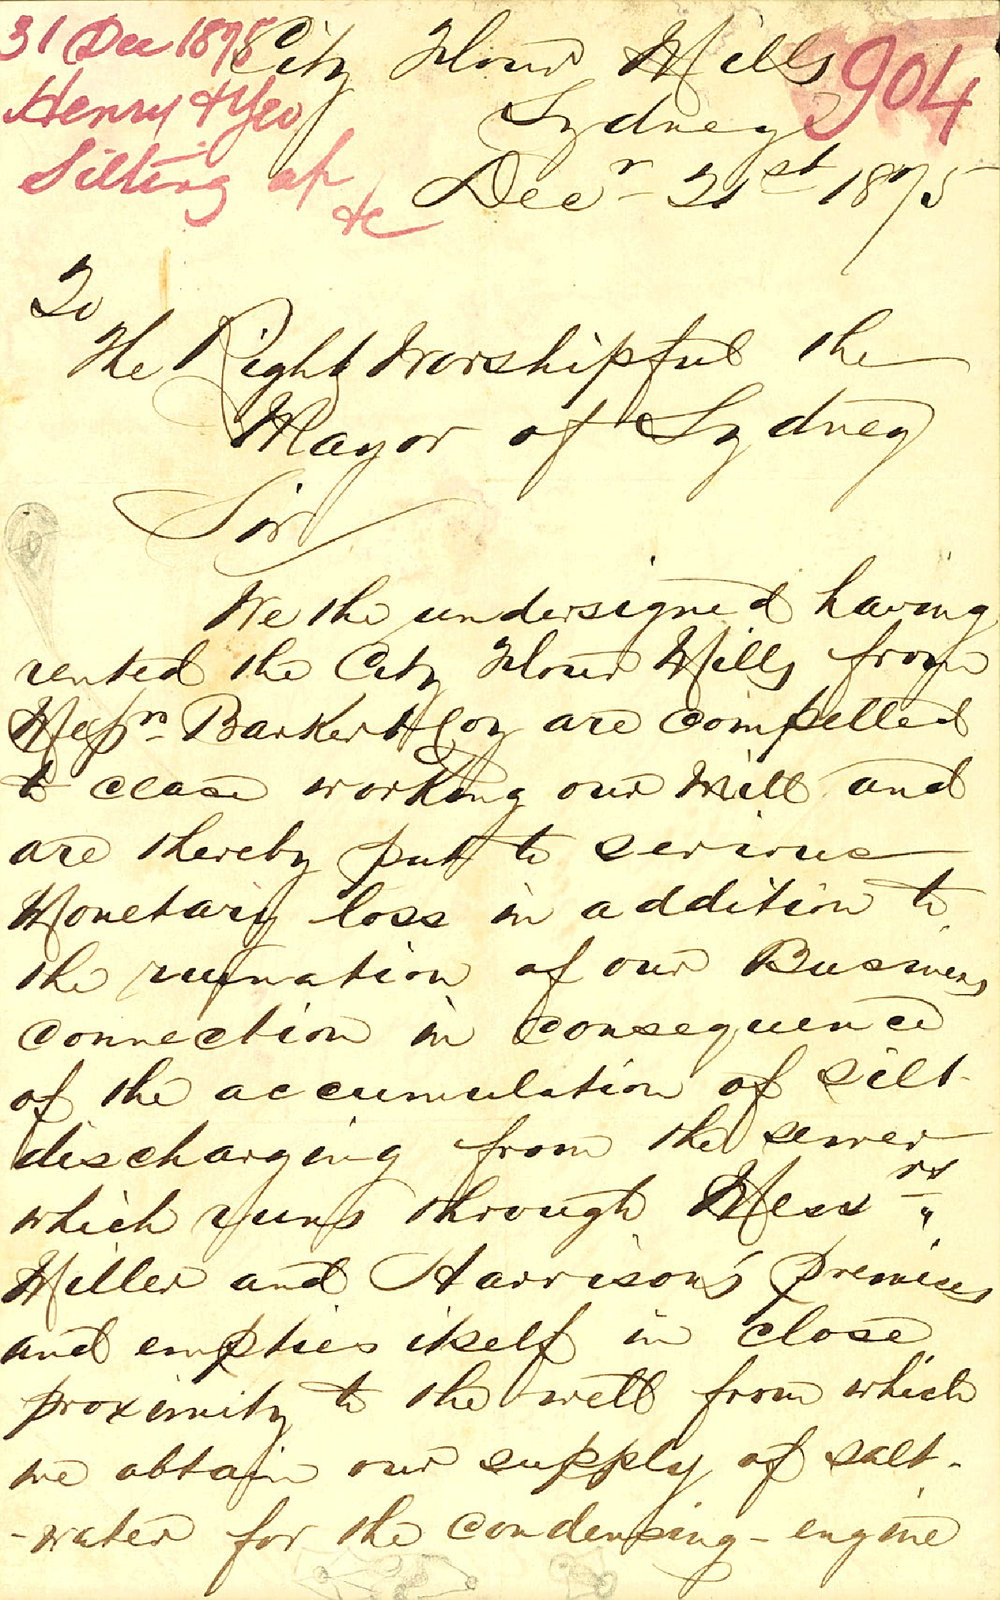 31 Dec 1875
Henry & Yeo
Silting up
&c
904
City Flour Mills
Sydney
Decr 31st 1875
To
The Right Worshipful the
Mayor of Sydney
Sir
We the undersigned having
rented the City Flour Mills from
Messrs Barker & Coy are compelled
to cease working our Mill and
are thereby put to serious
Monetary loss in addition to
the ruination of our Business
connection in consequence
of the accumulation of silt
discharging from the sewer
which runs through Messrs
Miller and Harrison's Premises
and empties itself in close
proximity to the well from which
we obtain our supply of salt-
-water for the condensing-engine